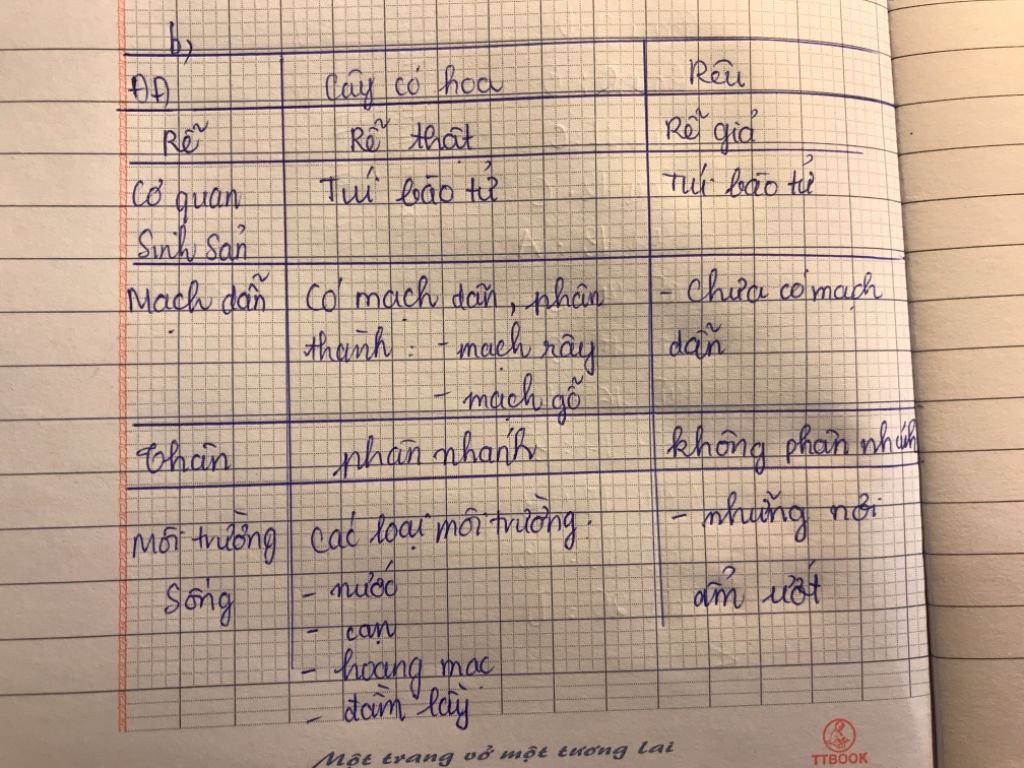 b,
ĐĐ Cây có hoa Rêu
Rễ Rễ thật Rễ giả
Cơ quan Túi bào tử Túi bào tử
Sinh sản
Mạch dẫn Có mạch dẫn, phân - Chưa có mạch
thành: - mạch rây dẫn
- mạch gỗ
Thân phân nhánh không phân nhánh
Môi trường Các loại môi trường. - những nơi
sống - nước ẩm ướt
- cạn
- hoang mạc
- đầm lầy
Một trang vở một tương lai
TTBOOK